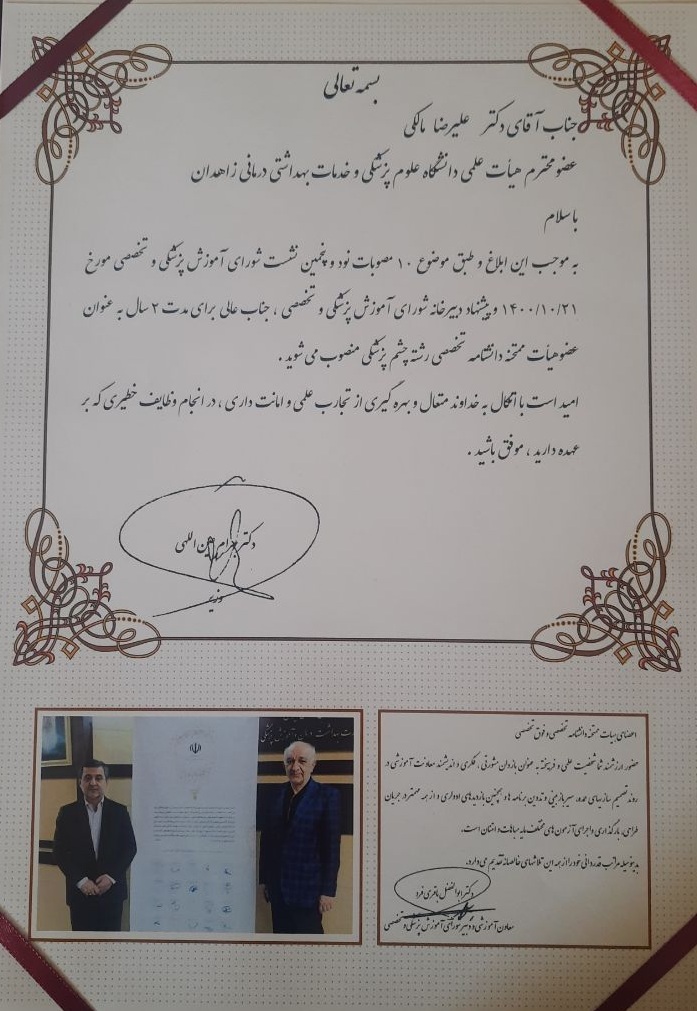 بسمه تعالی
جناب آقای دکتر علیرضا مالکی
عضو محترم هیأت علمی دانشگاه علوم پزشکی و خدمات بهداشتی درمانی زاهدان
با سلام
به موجب این ابلاغ و طبق موضوع ۱۰ مصوبات نود و پنجمین نشست شورای آموزش پزشکی و تخصصی مورخ
۱۴۰۰/۱۰/۲۱ و پیشنهاد دبیرخانه شورای آموزش پزشکی و تخصصی ، جناب عالی برای مدت ۲ سال به عنوان
عضو هیأت ممتحنه دانشنامه تخصصی رشته چشم پزشکی منصوب می شوید .
امید است با اتکال به خداوند متعال و بهره گیری از تجارب علمی و امانت داری ، در انجام وظایف خطیری که بر
عهده دارید ، موفق باشید .
دکتر بهرام عین اللهی
وزیر
اعضای هیات ممتحنه دانشنامه تخصصی و فوق تخصصی
حضور ارزشمند شما شخصیت علمی و فرهیخته به عنوان بازوان مشورتی ، فکری و اندیشمند معاونت آموزشی در
روند تصمیم سازیهای عمده، سیر بازبینی و تدوین برنامه ها و همچنین بازدیدهای ادواری و از همه مهمتر در جریان
طراحی، بارگذاری و اجرای آزمون های مختلف مایه مباهات و امتنان است.
بدینوسیله مراتب قدردانی خود را از همه این تلاشهای خالصانه تقدیم می دارد.
دکتر ابوالفضل باقری فرد
معاون آموزشی و دبیر شورای آموزش پزشکی و تخصصی